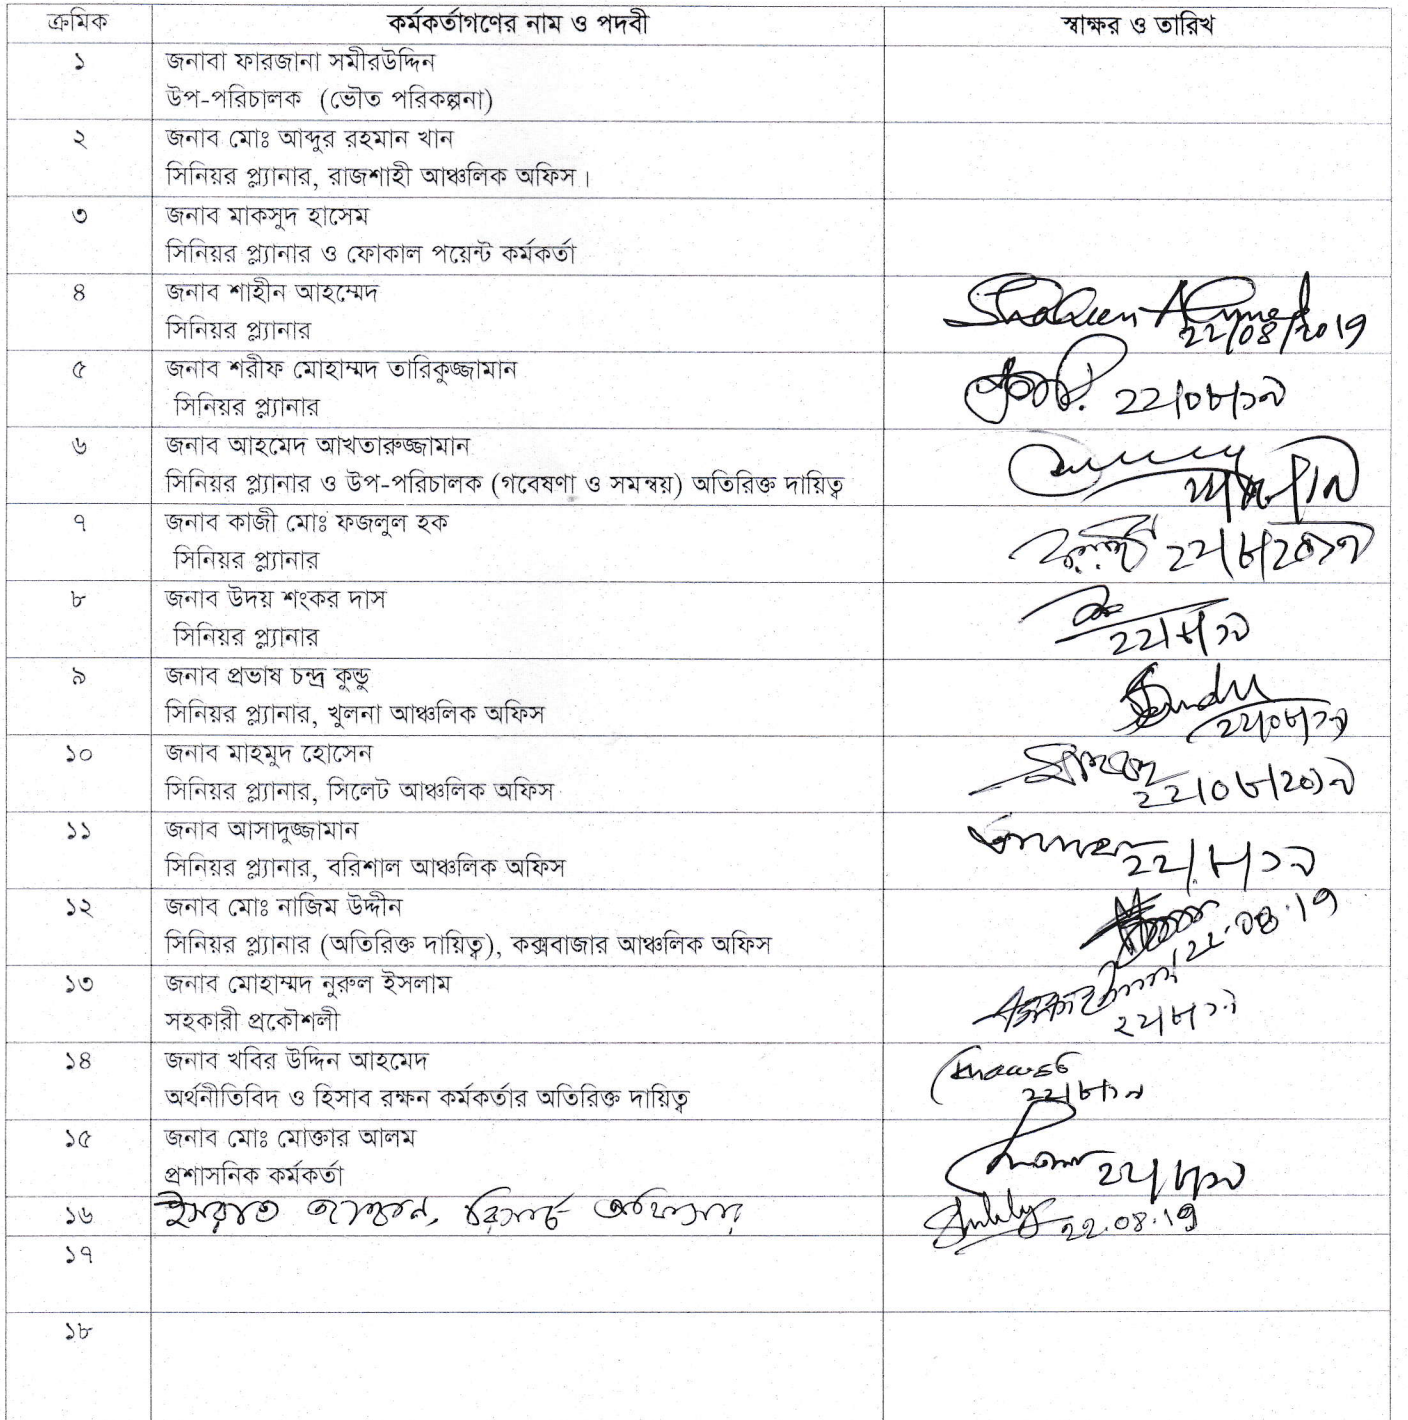 ক্রমিক কর্মকর্তাগণের নাম ও পদবী স্বাক্ষর ও তারিখ
১ জনাবা ফারজানা সমীরউদ্দিন
উপ-পরিচালক (ভৌত পরিকল্পনা)
২ জনাব মোঃ আব্দুর রহমান খান
সিনিয়র প্ল্যানার, রাজশাহী আঞ্চলিক অফিস।
৩ জনাব মাকসুদ হাসেম
সিনিয়র প্ল্যানার ও ফোকাল পয়েন্ট কর্মকর্তা
৪ জনাব শাহীন আহম্মেদ Shaheen Ahmed
সিনিয়র প্ল্যানার 22/08/2019
৫ জনাব শরীফ মোহাম্মদ তারিকুজ্জামান
সিনিয়র প্ল্যানার ২২/০৮/১৯
৬ জনাব আহমেদ আখতারুজ্জামান
সিনিয়র প্ল্যানার ও উপ-পরিচালক (গবেষণা ও সমন্বয়) অতিরিক্ত দায়িত্ব
৭ জনাব কাজী মোঃ ফজলুল হক
সিনিয়র প্ল্যানার ২২/৮/২০১৯
৮ জনাব উদয় শংকর দাস
সিনিয়র প্ল্যানার ২২/৮/১৯
৯ জনাব প্রভাষ চন্দ্র কুন্ডু
সিনিয়র প্ল্যানার, খুলনা আঞ্চলিক অফিস ২২/০৮/১৯
১০ জনাব মাহমুদ হোসেন
সিনিয়র প্ল্যানার, সিলেট আঞ্চলিক অফিস ২২/০৮/২০১৯
১১ জনাব আসাদুজ্জামান
সিনিয়র প্ল্যানার, বরিশাল আঞ্চলিক অফিস ২২/৮/১৯
১২ জনাব মোঃ নাজিম উদ্দীন
সিনিয়র প্ল্যানার (অতিরিক্ত দায়িত্ব), কক্সবাজার আঞ্চলিক অফিস 22.08.19
১৩ জনাব মোহাম্মদ নুরুল ইসলাম
সহকারী প্রকৌশলী ২২/৮/১৯
১৪ জনাব খবির উদ্দিন আহমেদ
অর্থনীতিবিদ ও হিসাব রক্ষন কর্মকর্তার অতিরিক্ত দায়িত্ব ২২/৮/১৯
১৫ জনাব মোঃ মোক্তার আলম
প্রশাসনিক কর্মকর্তা ২২/৮/১৯
১৬ ইসরাত জাহান, রিসার্চ অফিসার 22.08.19
১৭
১৮